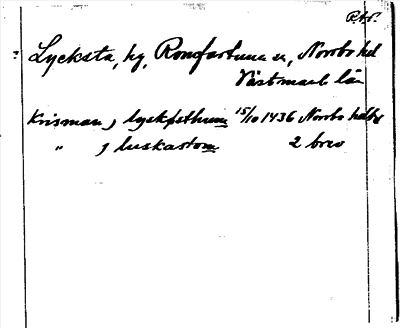 R.A.P.
Lycksta, by, Romfartuna sn, Norrbo hd
Västmanl län
Krisman j lyckøsthum 15/10 1436 Norrbo hdtg
" j luskastom 2 brev